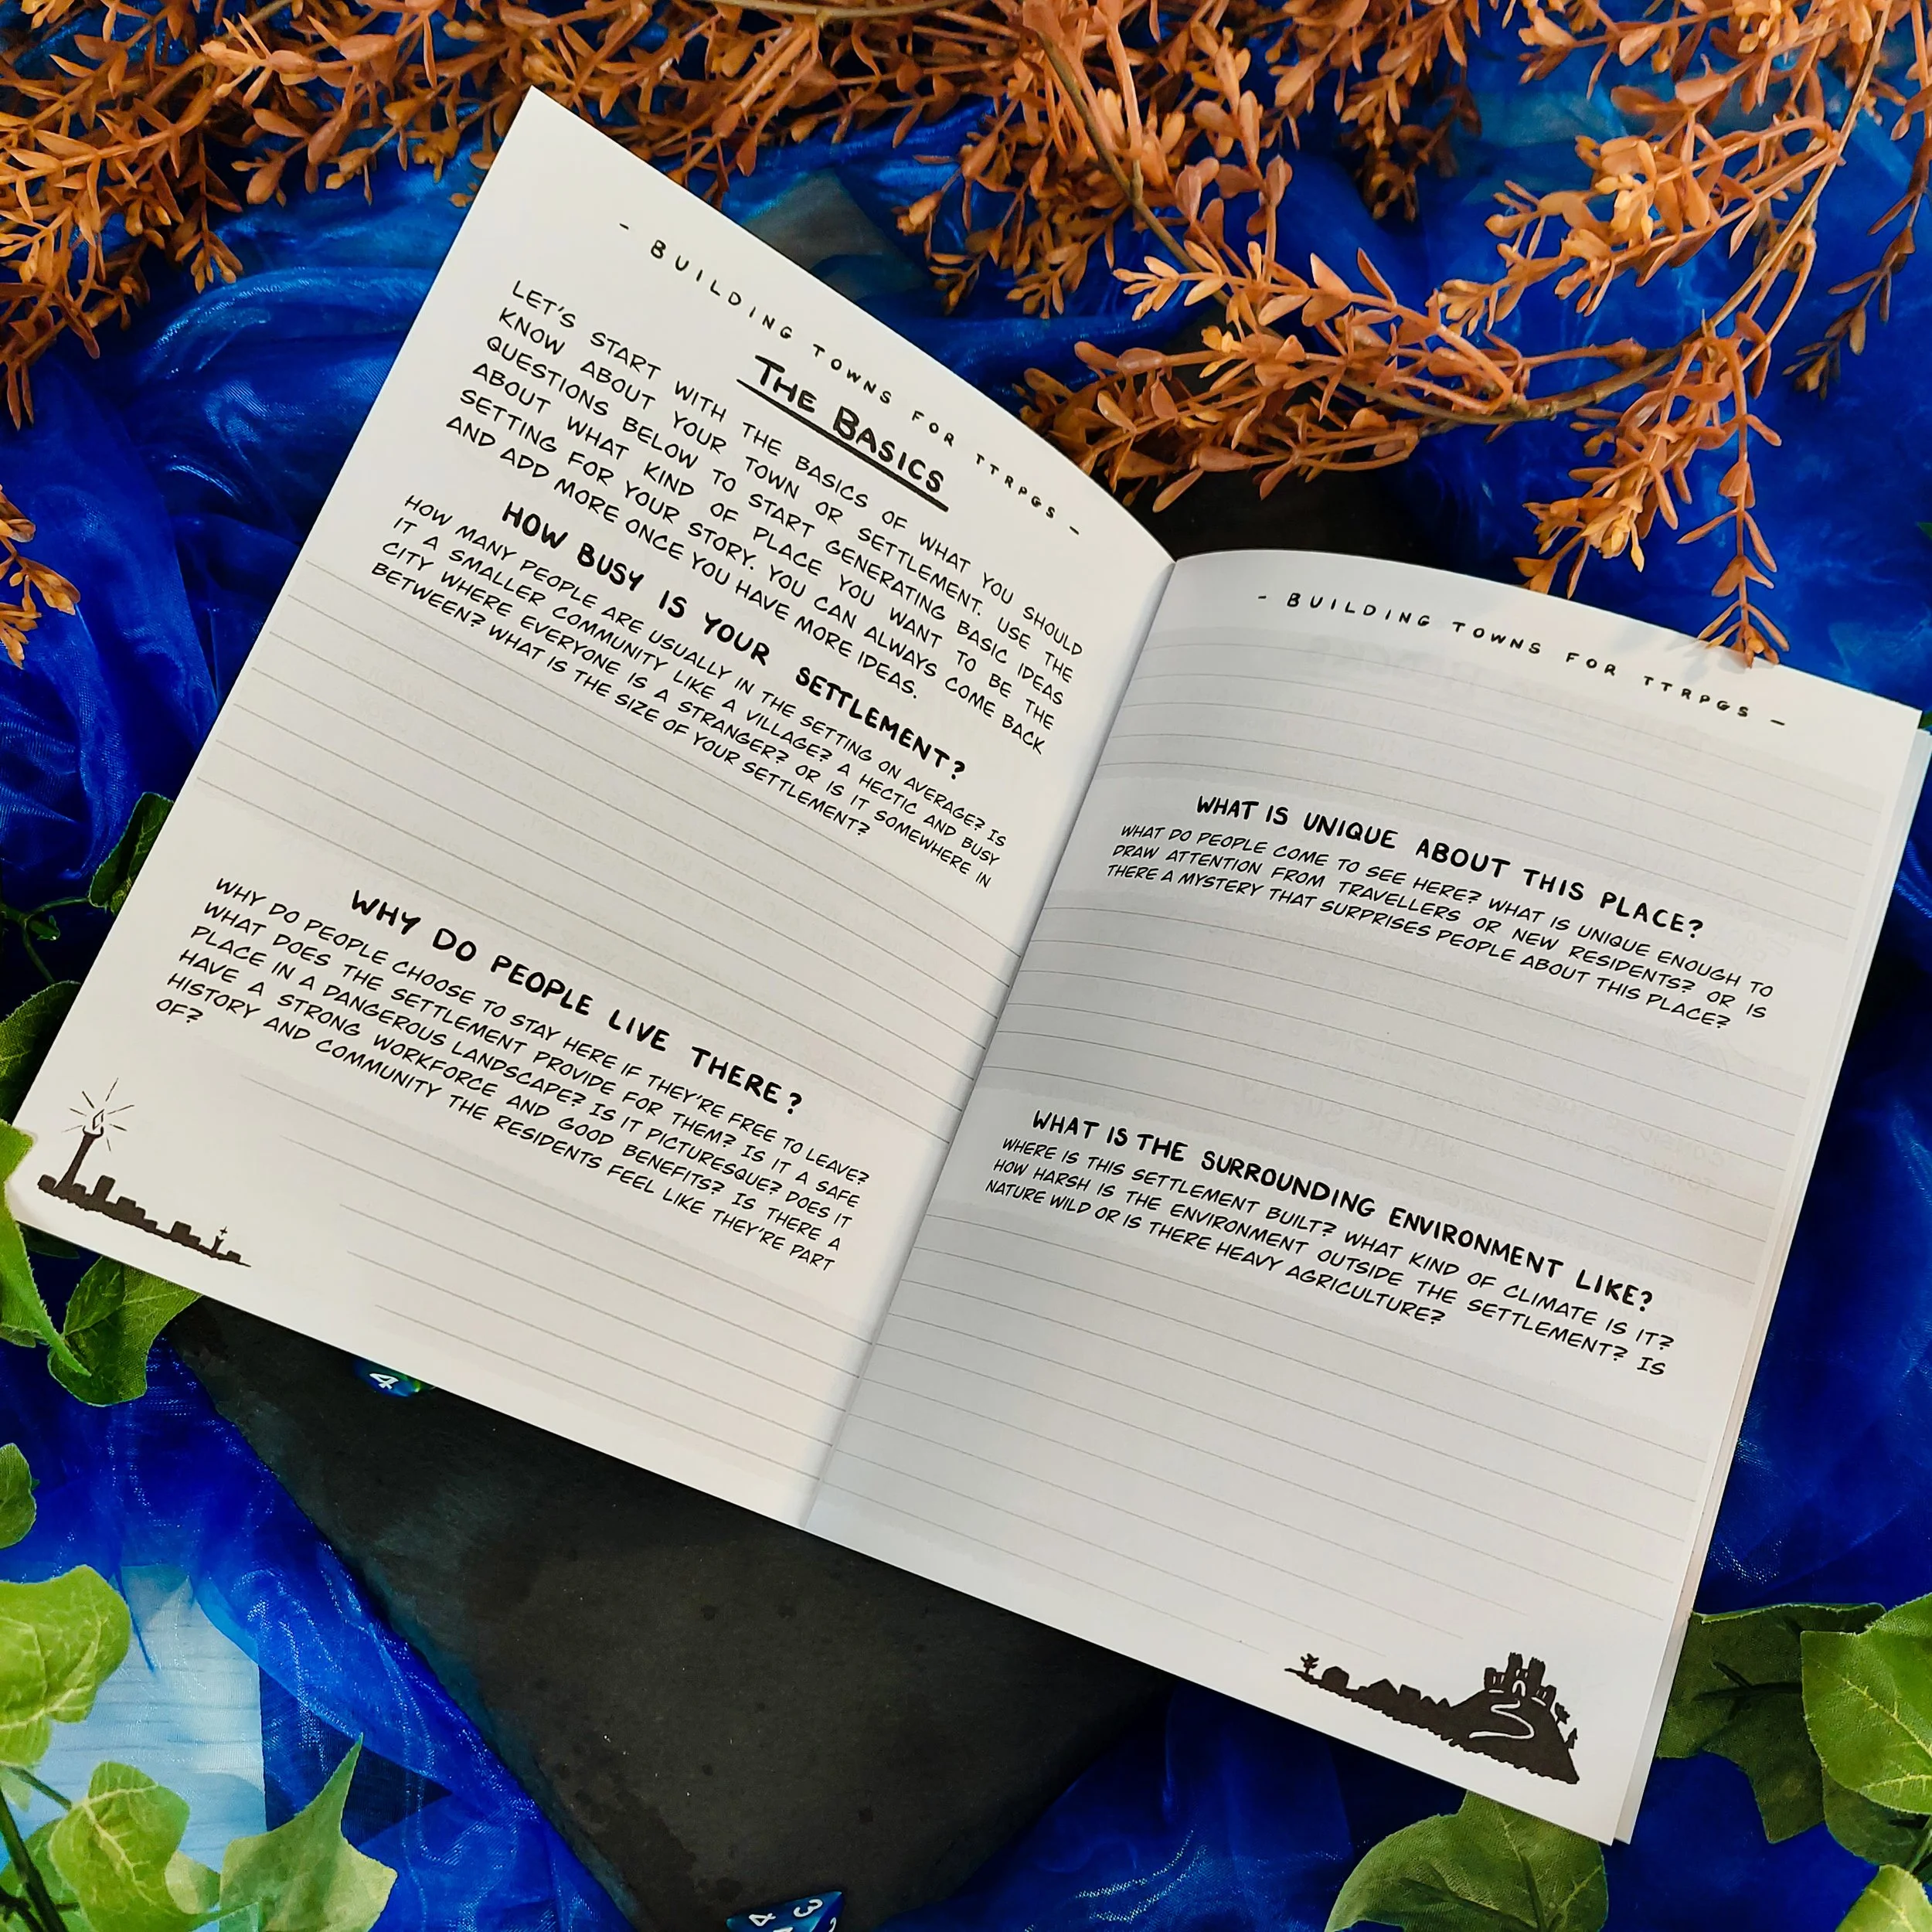 - BUILDING TOWNS FOR TTRPGS -
THE BASICS
LET'S START WITH THE BASICS OF WHAT YOU SHOULD
KNOW ABOUT YOUR TOWN OR SETTLEMENT. USE THE
QUESTIONS BELOW TO START GENERATING BASIC IDEAS
ABOUT WHAT KIND OF PLACE YOU WANT TO BE THE
SETTING FOR YOUR STORY. YOU CAN ALWAYS COME BACK
AND ADD MORE ONCE YOU HAVE MORE IDEAS.
HOW BUSY IS YOUR SETTLEMENT?
HOW MANY PEOPLE ARE USUALLY IN THE SETTING ON AVERAGE? IS
IT A SMALLER COMMUNITY LIKE A VILLAGE? A HECTIC AND BUSY
CITY WHERE EVERYONE IS A STRANGER? OR IS IT SOMEWHERE IN
BETWEEN? WHAT IS THE SIZE OF YOUR SETTLEMENT?
WHY DO PEOPLE LIVE THERE?
WHY DO PEOPLE CHOOSE TO STAY HERE IF THEY'RE FREE TO LEAVE?
WHAT DOES THE SETTLEMENT PROVIDE FOR THEM? IS IT A SAFE
PLACE IN A DANGEROUS LANDSCAPE? IS IT PICTURESQUE? DOES IT
HAVE A STRONG WORKFORCE AND GOOD BENEFITS? IS THERE A
HISTORY AND COMMUNITY THE RESIDENTS FEEL LIKE THEY'RE PART
OF?
- BUILDING TOWNS FOR TTRPGS -
WHAT IS UNIQUE ABOUT THIS PLACE?
WHAT DO PEOPLE COME TO SEE HERE? WHAT IS UNIQUE ENOUGH TO
DRAW ATTENTION FROM TRAVELLERS OR NEW RESIDENTS? OR IS
THERE A MYSTERY THAT SURPRISES PEOPLE ABOUT THIS PLACE?
WHAT IS THE SURROUNDING ENVIRONMENT LIKE?
WHERE IS THIS SETTLEMENT BUILT? WHAT KIND OF CLIMATE IS IT?
HOW HARSH IS THE ENVIRONMENT OUTSIDE THE SETTLEMENT? IS
NATURE WILD OR IS THERE HEAVY AGRICULTURE?
4
4 3